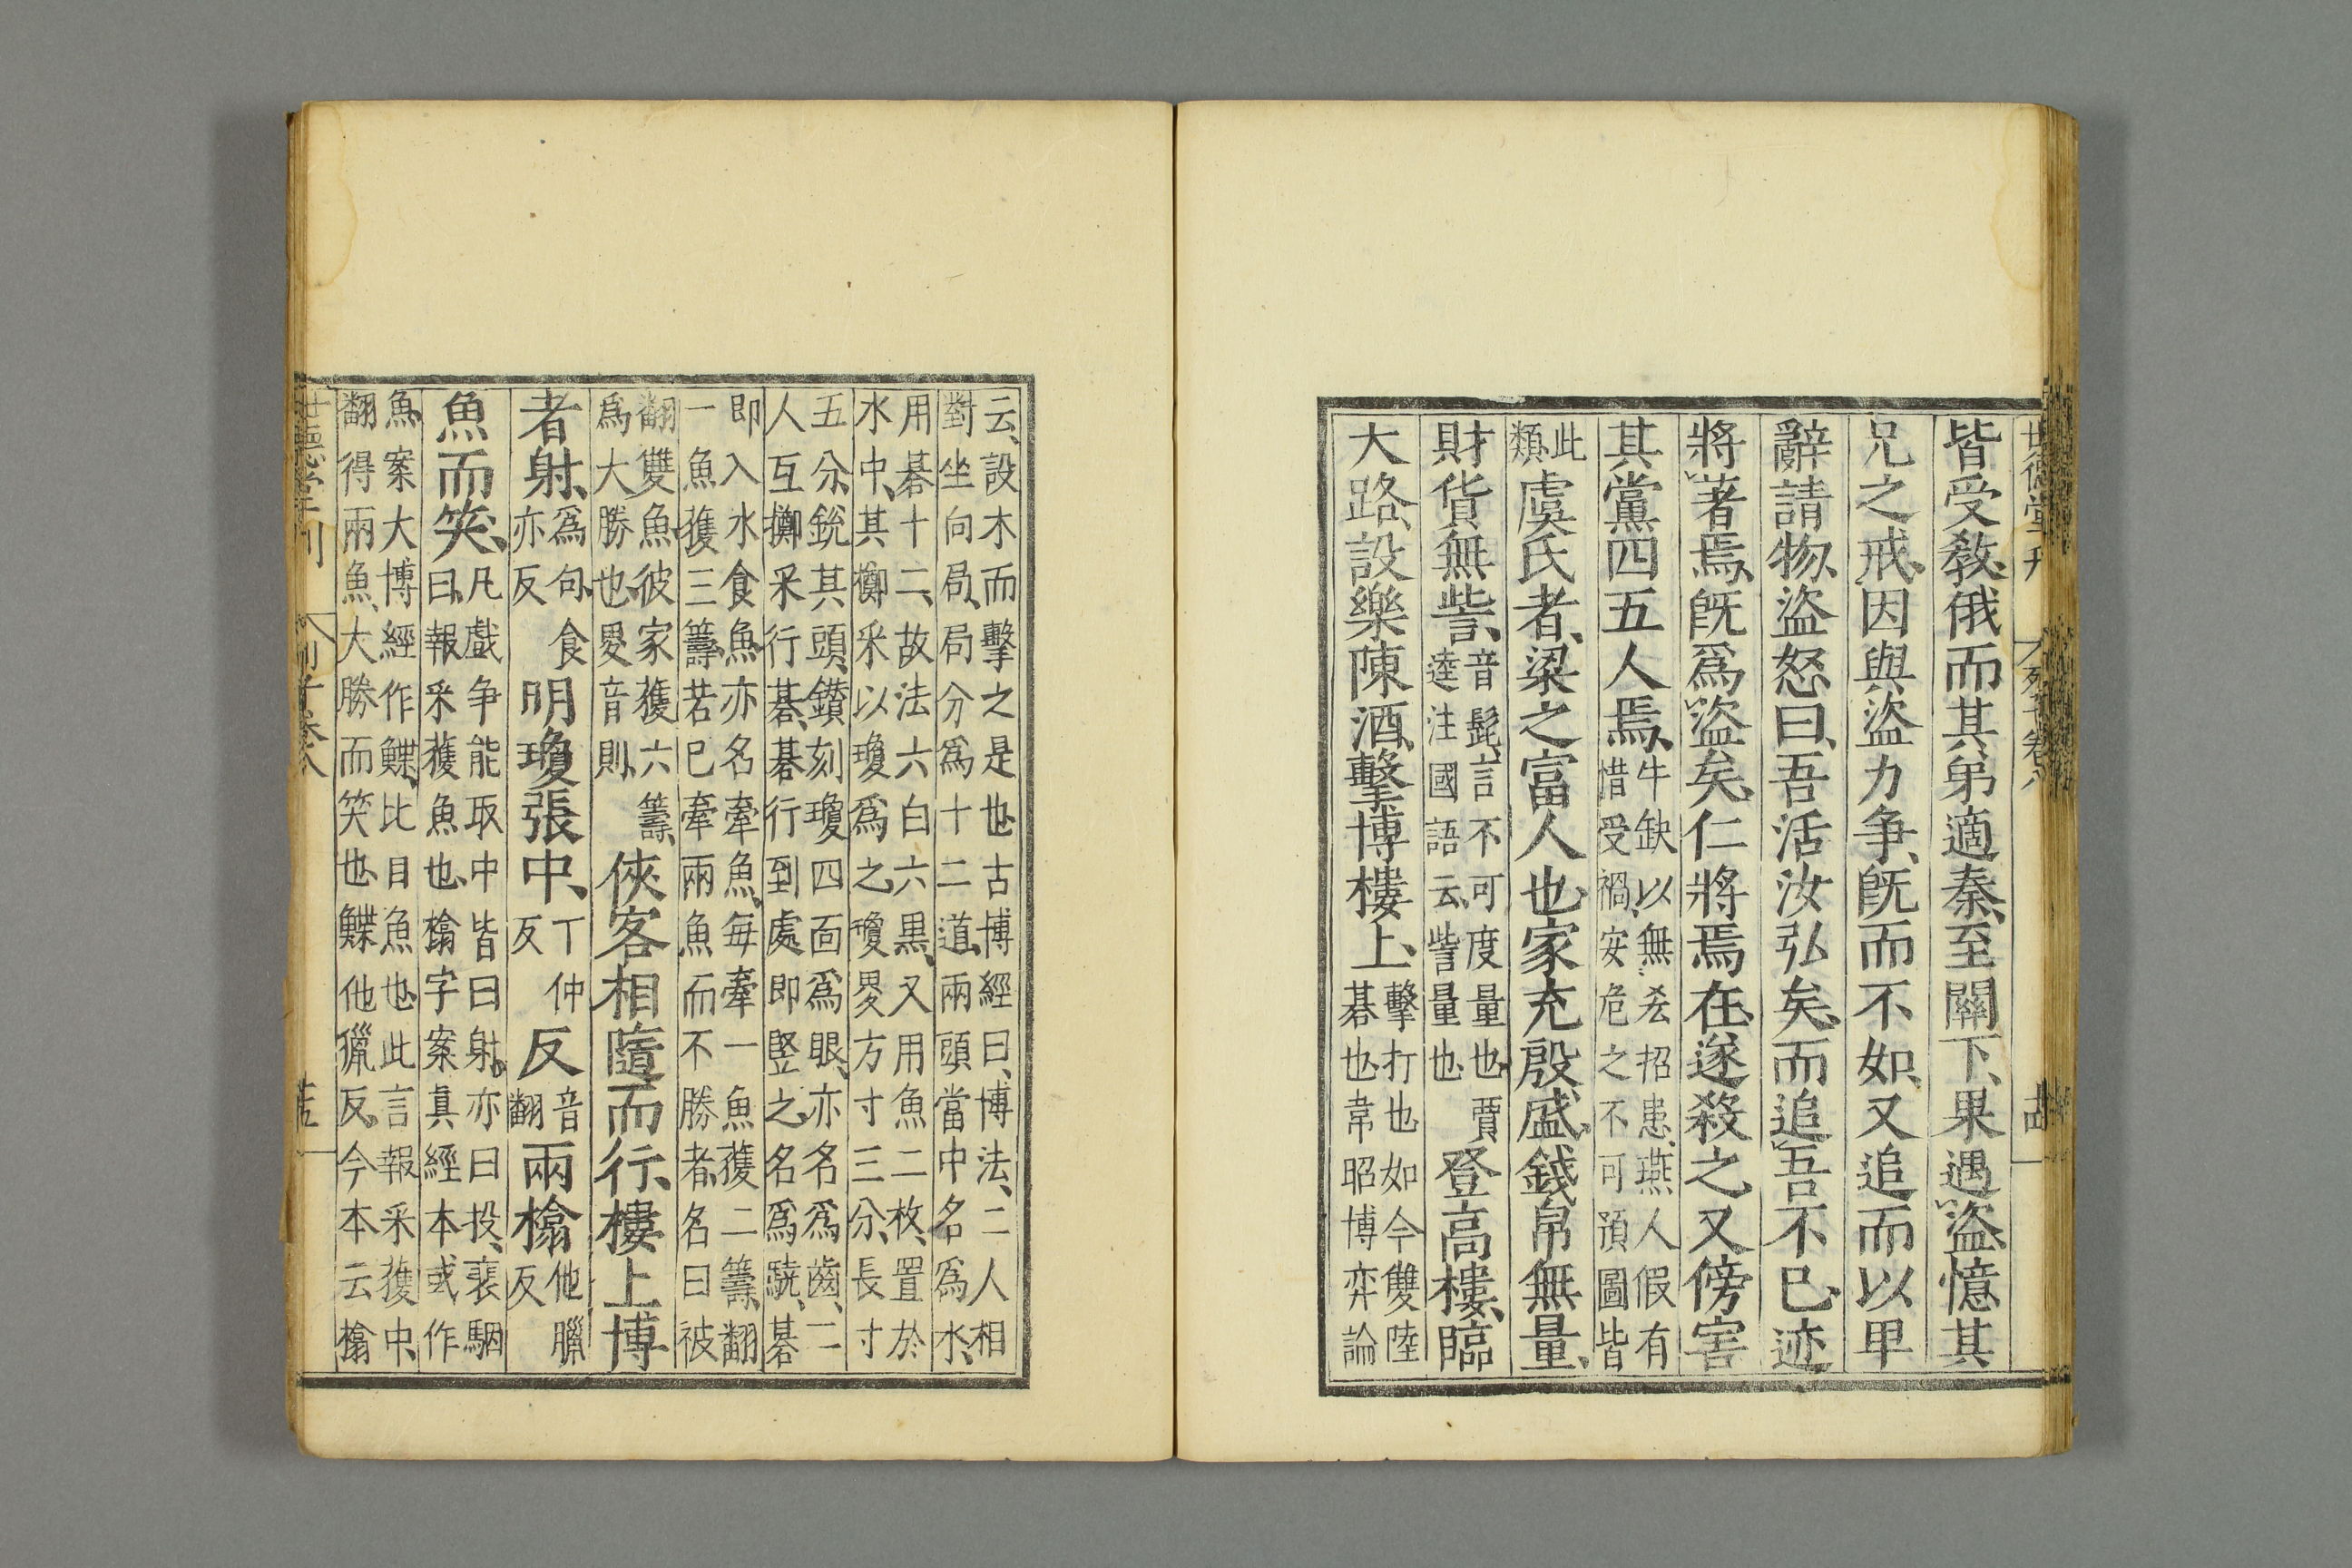 皆受敎俄而其弟適秦至關下果遇盜憶其
兄之戒因與盜力爭旣而不如又追而以卑
辭請物盜怒曰吾活汝弘矣而追吾不已迹
將著焉旣爲盜矣仁將焉在遂殺之又傍害
其黨四五人焉
牛缺以無㳒招患燕人假有
惜受禍安危之不可預圖皆
此
類
虞氏者梁之富人也家充殷盛錢帛無量
財貨無訾
音髭言不可度量也賈
逵注國語云訾量也
登高樓臨
大路設樂陳酒擊博樓上
擊打也如今雙陸
碁也韋昭博弈論
云設木而擊之是也古博經曰博法二人相
對坐向局局分爲十二道兩頭當中名爲水
用碁十二故法六白六黑又用魚二枚置於
水中其擲采以瓊爲之瓊畟方寸三分長寸
五分銳其頭鑚刻瓊四面爲眼亦名爲齒二
人互擲采行碁碁行到處即竪之名爲驍碁
即入水食魚亦名牽魚每牽一魚獲二籌翻
一魚獲三籌若已牽兩魚而不勝者名曰被
翻雙魚彼家獲六籌
爲大勝也畟音則
俠客相隨而行樓上博
者射
爲句食
亦反
明瓊張中
丁仲
反
反
音
翻
兩㯓
他臘
反
魚而笑
凡戲争能取中皆曰射亦曰投裴駰
曰報采獲魚也㯓字案眞經本或作
魚案大博經作鰈比目魚也此言報采獲中
翻得兩魚大勝而笑也鰈他獵反今本云㯓
世德堂刊
列子卷八